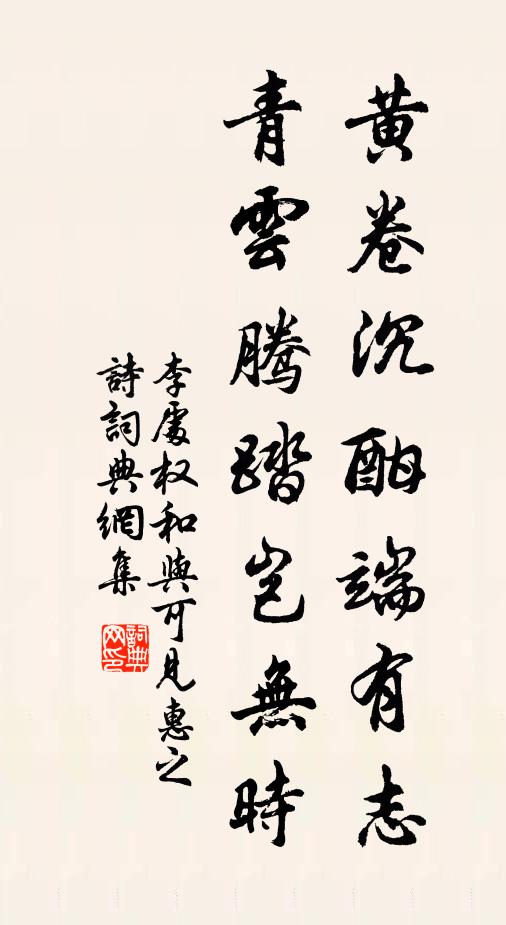 黄卷沉酣端有志
青雲騰踏豈無時
李處权和與可見惠之
詩詞典網集
詞典網印